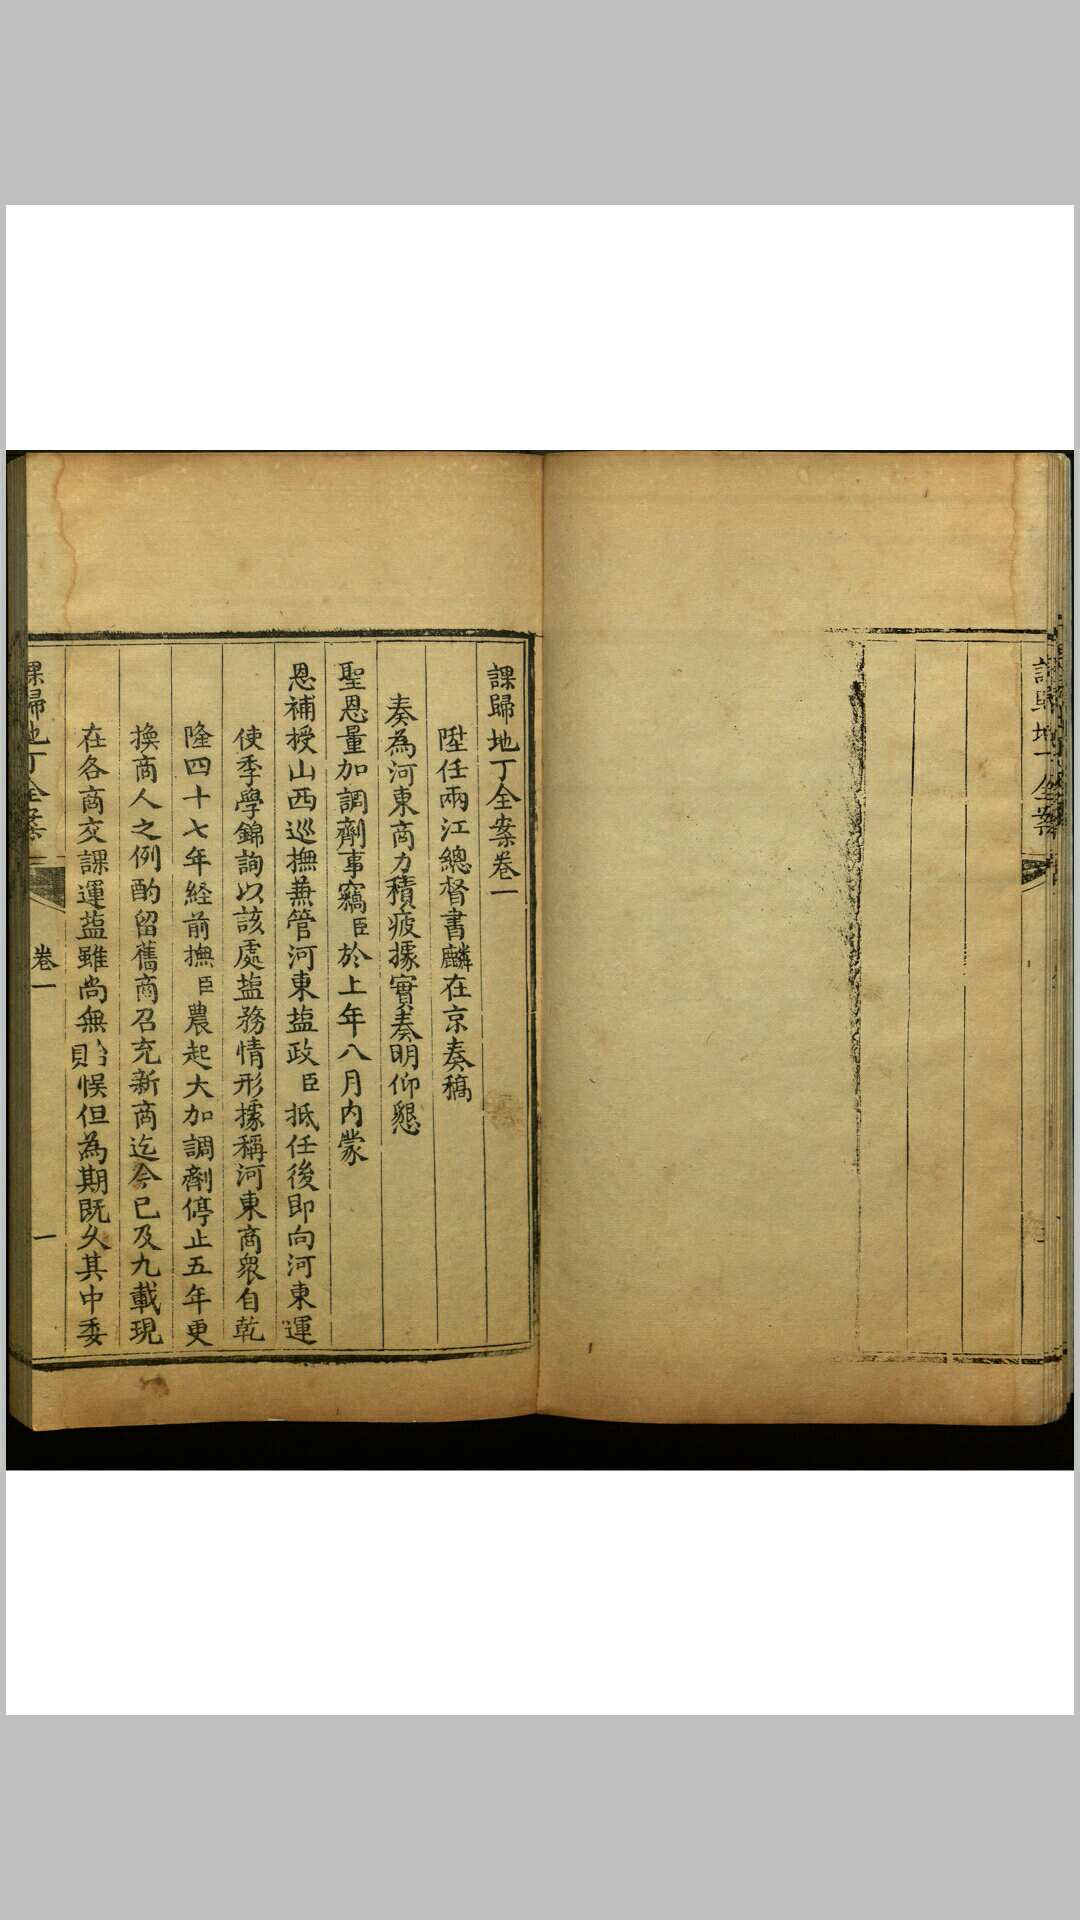 課歸地丁全案
課歸地丁全案卷一
陞任兩江總督書麟在京奏稿
奏為河東商力積疲據實奏明仰懇
聖恩量加調劑事竊臣於上年八月内蒙
恩補授山西巡撫兼管河東塩政臣抵任後即向河東運
使季學錦詢以該處塩務情形據稱河東商衆自乾
隆四十七年経前撫臣農起大加調劑停止五年更
換商人之例酌留舊商召充新商迄今已及九載現
在各商交課運塩雖尚無貽悮但為期既久其中委
課歸地丁全案 卷一 一